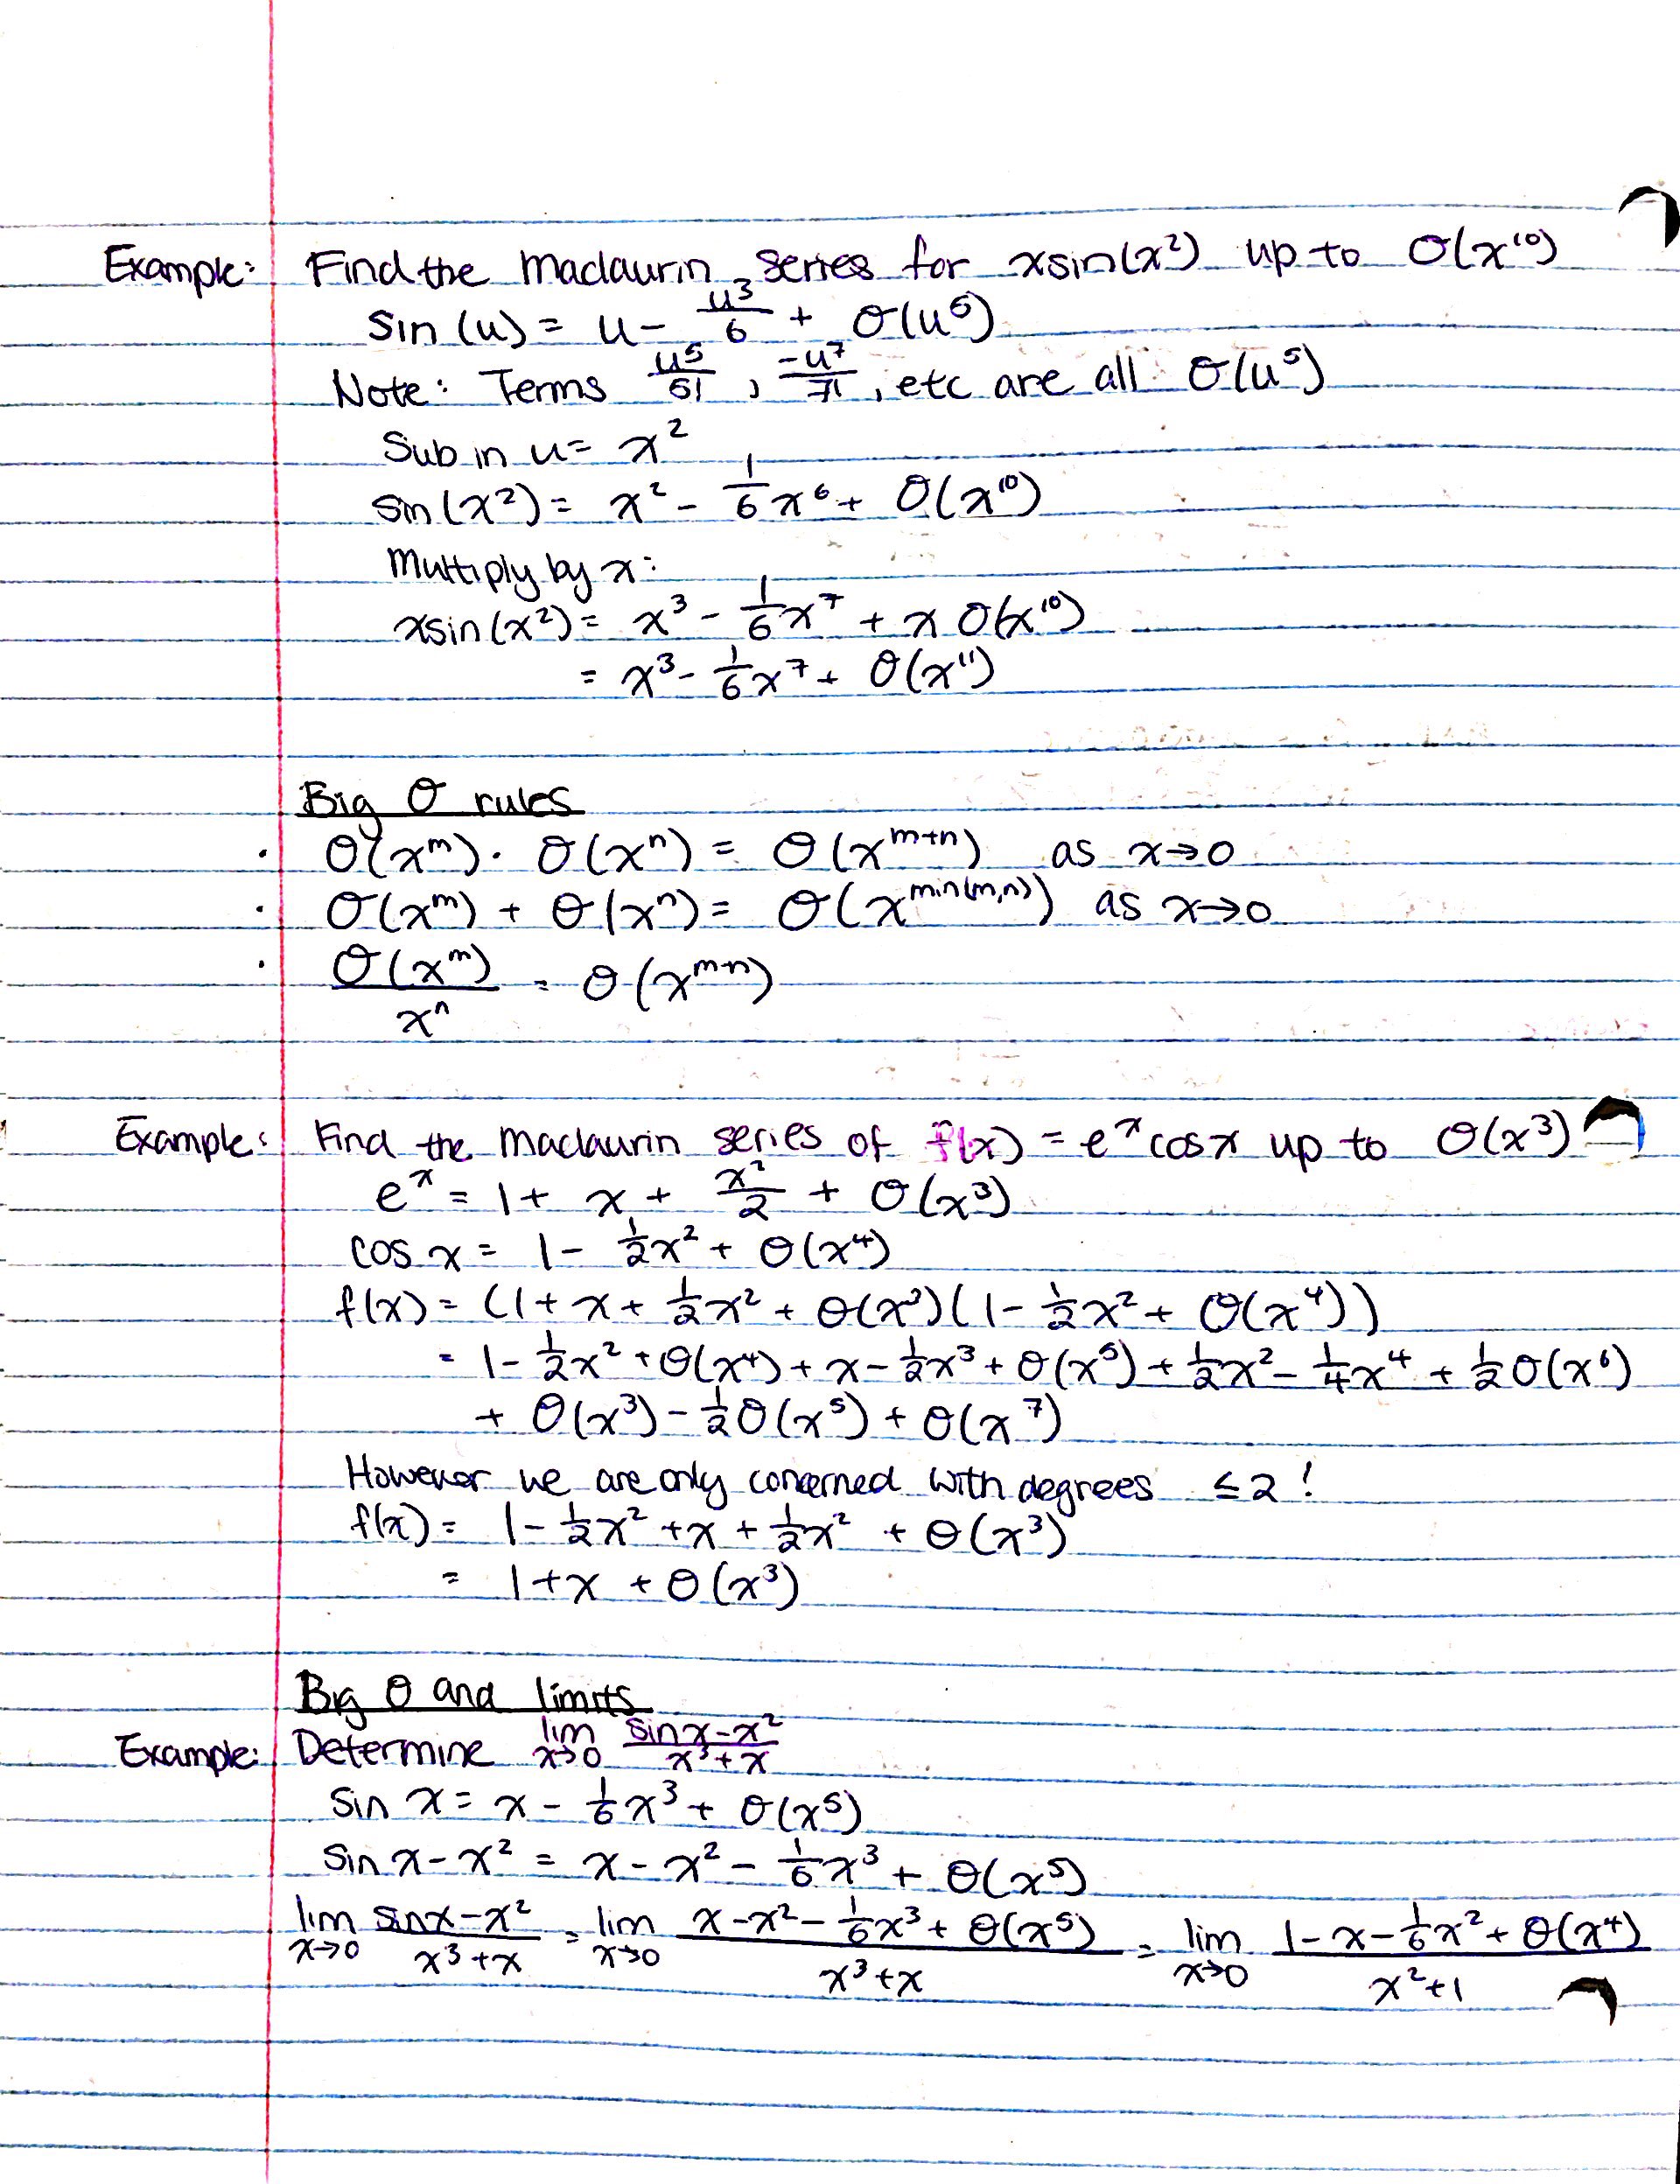 Example: Find the Maclaurin series for xsin(x²) up to O(x¹⁰)
sin(u) = u - u³/6 + O(u⁵)
Note: Terms u⁵/5!, -u⁷/7!, etc are all O(u⁵)
Sub in u = x²
sin(x²) = x² - 1/6 x⁶ + O(x¹⁰)
Multiply by x:
xsin(x²) = x³ - 1/6 x⁷ + x O(x¹⁰)
= x³ - 1/6 x⁷ + O(x¹¹)
Big O rules
· O(xᵐ) · O(xⁿ) = O(xᵐ⁺ⁿ) as x→0
· O(xᵐ) + O(xⁿ) = O(x^min(m,n)) as x→0
· O(xᵐ)/xⁿ = O(x^m-n)
Example: Find the Maclaurin series of f(x) = eˣcosx up to O(x³)
eˣ = 1 + x + x²/2 + O(x³)
cos x = 1 - 1/2 x² + O(x⁴)
f(x) = (1 + x + 1/2 x² + O(x³)(1 - 1/2 x² + O(x⁴))
= 1 - 1/2 x² + O(x⁴) + x - 1/2 x³ + O(x⁵) + 1/2 x² - 1/4 x⁴ + 1/2 O(x⁶)
+ O(x³) - 1/2 O(x⁵) + O(x⁷)
However we are only concerned with degrees ≤ 2!
f(x) = 1 - 1/2 x² + x + 1/2 x² + O(x³)
= 1 + x + O(x³)
Big O and limits
Example: Determine lim x→0 sinx-x² / x³+x
sin x = x - 1/6 x³ + O(x⁵)
sin x - x² = x - x² - 1/6 x³ + O(x⁵)
lim x→0 sinx-x² / x³+x = lim x→0 x-x²-1/6 x³+O(x⁵) / x³+x = lim x→0 1-x-1/6 x²+O(x⁴) / x²+1